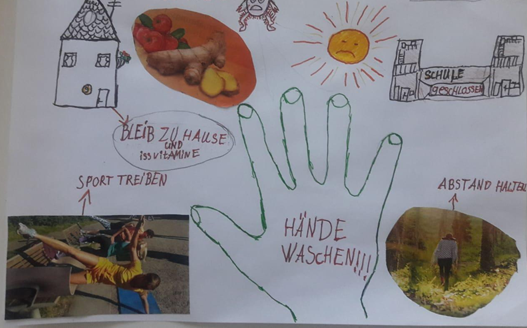 SCHULE
GESCHLOSSEN
BLEIB ZU HAUSE
UND
ISS VITAMINE
SPORT TREIBEN
ABSTAND HALTEN
HÄNDE
WASCHEN!!!